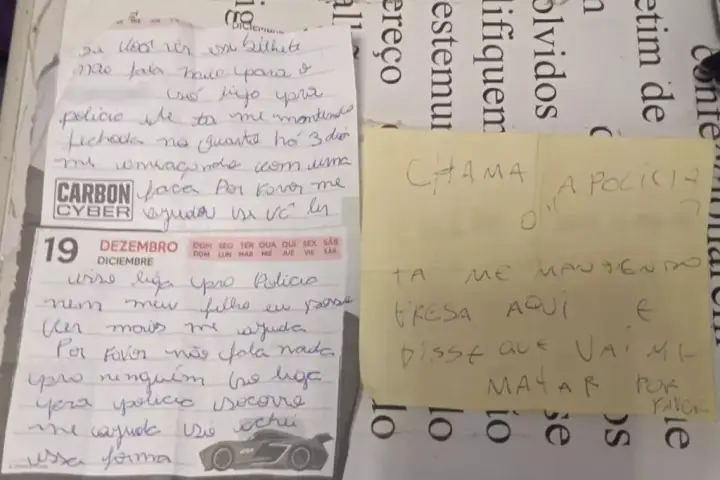 se você ver esse bilhete
não fala nada para o
só liga para
policia ele ta me mantendo
fechada no quarto há 3 dia
me ameaçando com uma
CARBON
CYBER
faca Por Favor me
ajudar se vc ler
19 DEZEMBRO
DICIEMBRE
DOM SEG TER QUA QUI SEX SÁB
DOM LUN MAR MIÉ JUE VIE SÁB
isso liga pro Policia
nem meu filho eu posso
Ver mais me ajuda
Por Favor não fala nada
pro ninguém so liga
para policia socorro
me ajuda só achei
essa forma
CHAMA A POLICIA
O
TA ME MANTENDO
PRESA AQUI E
DISSE QUE VAI ME
MATAR POR
FAVOR
ereço
estemun
lifiquem
olvidos
etim de